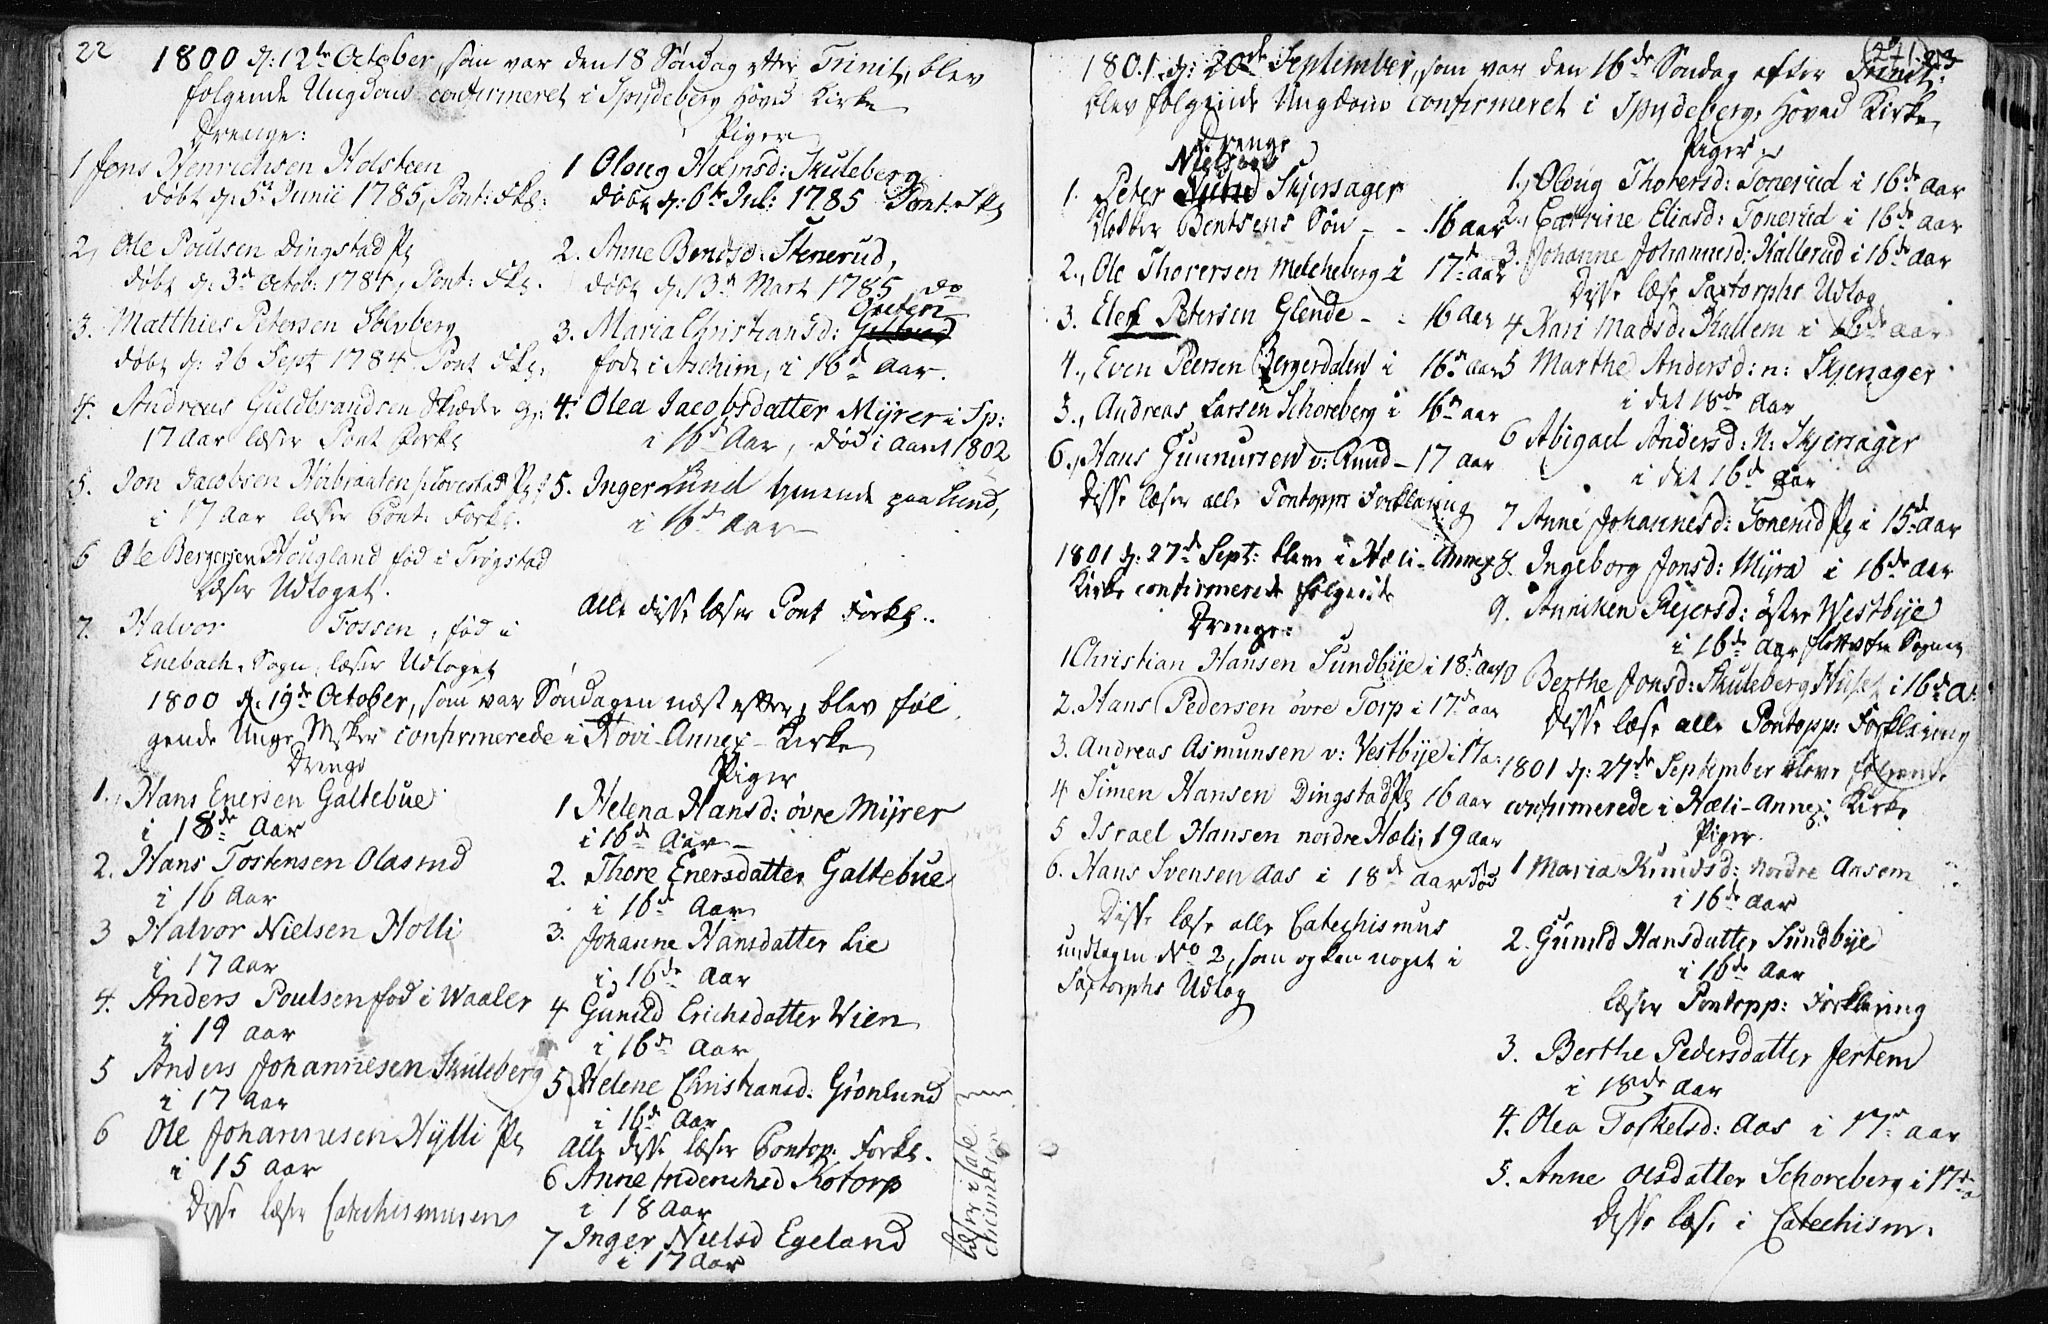 22
1800 d: 12te October, som var den 18 Søndag efter Trinit, blev
følgende Ungdom confirmeret i Spydeberg Hoved Kirke
Drenge:
1 Jens Henrichsen Holsteen
døbt d: 5t Junii 1785, Pont: Fkl:
2, Ole Poulsen Dingstad Pl
døbt d: 3d Octob: 1784, Pont: Fkl.
3. Matthies Petersen Solvberg
døbt d: 26 Sept 1784 Pont Fkl:
4. Andreas Guldbrandsen
17 Aar læser Pont Forkl
5. Jon Jacobsen Hoibraaten
i 17 Aar læser Pont: Forkl.
6 Ole Bergersen Hougland fød i Trøgstad
læser Udtoget.
7. Halvor Fossen, fød i
Enebach Sogn, læser Udtoget
Piger
1 Oloug Holmsd: Skuleberg
døbt d: 6te Jul: 1785 Pont: Fkl
2. Anne Bendsd: Stenerud,
døbt d: 13d Mart 1785 do
3. Maria Christiansd:
født i Aschim, i 16de Aar.
4. Olea Jacobsdatter Myrer i Sp:
i 16d Aar, død i Aaret 1802
5. Inger Lund tjenende paa Lund,
i 16d Aar
Alle disse læser Pont Forkl..
1800 d: 19de October, som var Søndagen næst efter, blev føl
gende Unge Msker confirmerede i Hovi-Annex-Kirke
Drenge
1., Hans Enersen Galtebue
i 18de Aar
2. Hans Tostensen Olasrud
i 16 Aar
3 Halvor Nielsen Holli
i 17 Aar
4. Anders Poulsen fød i Waaler
i 19 Aar
5 Anders Johannesen Skuleberg
i 17 Aar
6 Ole Johannesen Hylli Pl
i 15 Aar
Disse læser Catechismusen
Piger
1 Helena Hansd: øvre Myrer
i 16de Aar
2. Thore Enersdatter Galtebue
i 16de Aar
3. Johanne Hansdatter Lie
i 16de Aar
4 Gunild Erichsdatter Wien
i 16de Aar
5 Helene Christiansd: Grønlund
i 16de Aar
Alle disse læser Pontop: Forkl.
6 Anne Friderichsd Kotorp
i 18 Aar
7 Inger Nielsd Egeland
i 17 Aar
læser i Cate
chismusen
(241) 23
1801 d: 20de September, som var den 16de Søndag efter Trinit:
blev følgende Ungdom confirmeret i Spydeberg Hoved Kirke
Drenge
Nielsen
1. Peter Skjersager
Klokker Bentsens Søn - - 16 Aar
2., Ole Thorersen Melcheberg i 17d Aar
3. Elef Petersen Glende - - 16 Aar
4., Even Peersen Bergerdalen i 16d Aar
3., Andreas Larsen Schoreberg i 16d Aar
6., Hans Gunnursen v: Rund - 17 Aar
Disse læser alle Pontopp: Forklaring
1801 d: 27de Sept: blev i Hæli-Annex
Kirke confirmerede følgende
Drenge:
1 Christian Hansen Sundbye i 18d Aar
2. Hans Pedersen øvre Torp i 17de Aar
3. Andreas Asmunsen v: Vestbye i 17 a:
4 Simen Hansen Dingstad Pl 16 Aar
5 Israel Hansen nordre Hæli, 19 Aar
6. Hans Svensen Aas i 18de Aar død
Disse læse alle Catechismus
undtagen No 2, som og kan noget i
Saxtorphs Udtog
Piger
1., Oloug Thorersd: Tonerud i 16de Aar
2., Catrine Eliasd: Tonerud i 16de Aar
3. Johanne Johannesd: Kallerud i 16de Aar
Disse læse Saxtorphs Udtog
4 Kari Madsd: Kallem i 18de Aar
5 Marthe Andersd: n: Skjersager
i det 18de Aar
6 Abigael Andersd: N: Skjersager
i det 16de Aar
7 Anne Johannesd: Tonerud Pl i 15de Aar
8. Ingeborg Jonsd: Myra i 16de Aar
9. Anniken Rejersd: øster Westbye
i 16de Aar flyttet fra Sognet
10 Berthe Jonsd: Skuleberg Huset i 16de A:
Disse læse alle Pontopp: Forklaring
1801 d: 27de September bleve følgende
confirmerede i Hæli-Annex: Kirke
Piger.
1 Maria Knudsd: Nordre Aasem
i 16de Aar
2. Gunild Hansdatter Sundbye
i 16de Aar
læser Pontopp: Forklaring
3. Berthe Pedersdatter Jertem
i 18de Aar
4. Olea Torkelsd: Aas i 17d Aar
5. Anne Olsdatter Schoreberg i 17de a
Disse læse i Catechism: